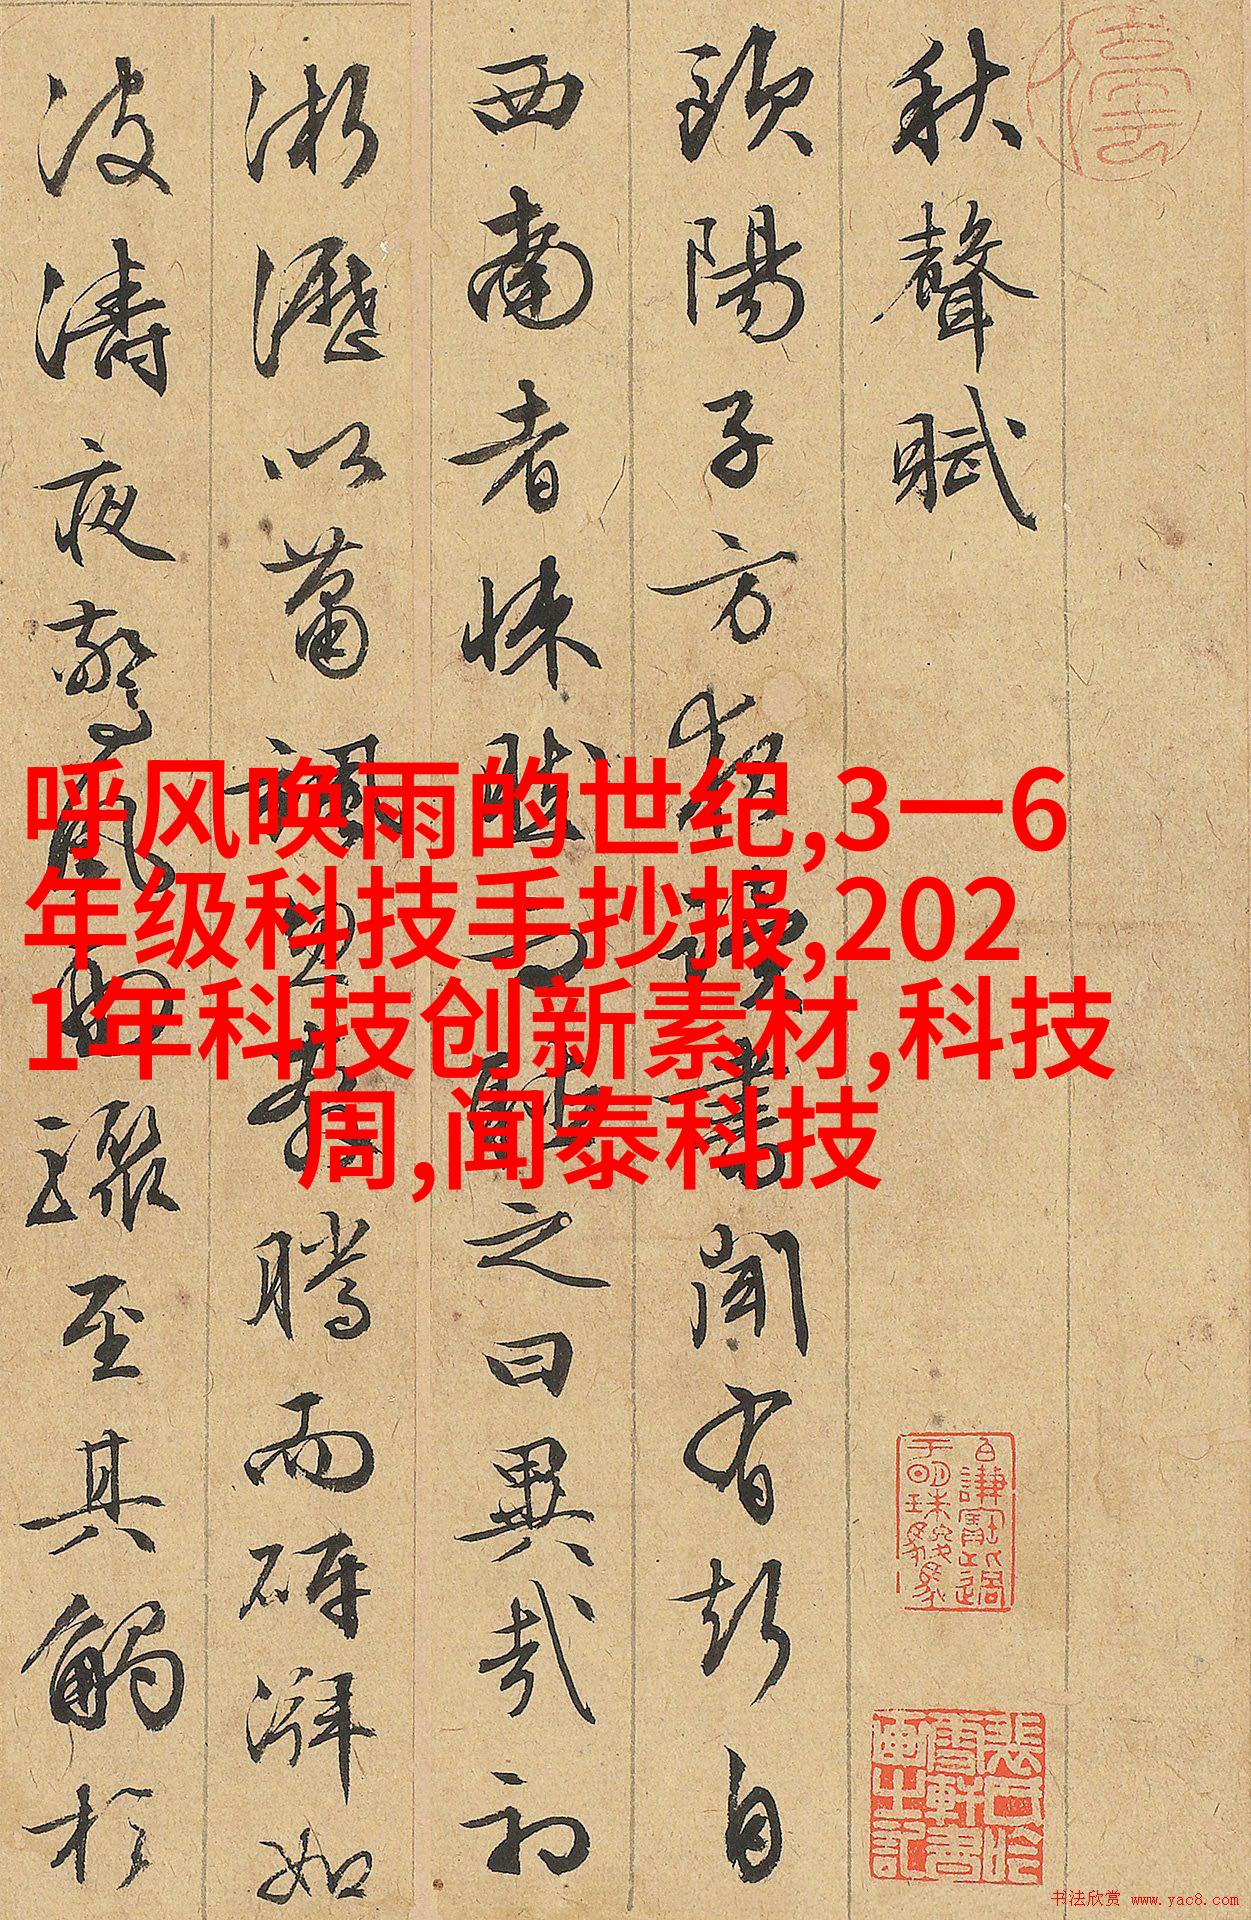 秋聲賦
歐陽子方夜讀書聞有聲自
西南者悚然而聽之曰異哉初
淅瀝以蕭颯忽奔騰而砰湃如
波濤夜驚風雨驟至其觸於
呼风唤雨的世纪,3一6
年级科技手抄报,202
1年科技创新素材,科技
周,闻泰科技
书法欣赏 www.yac8.com